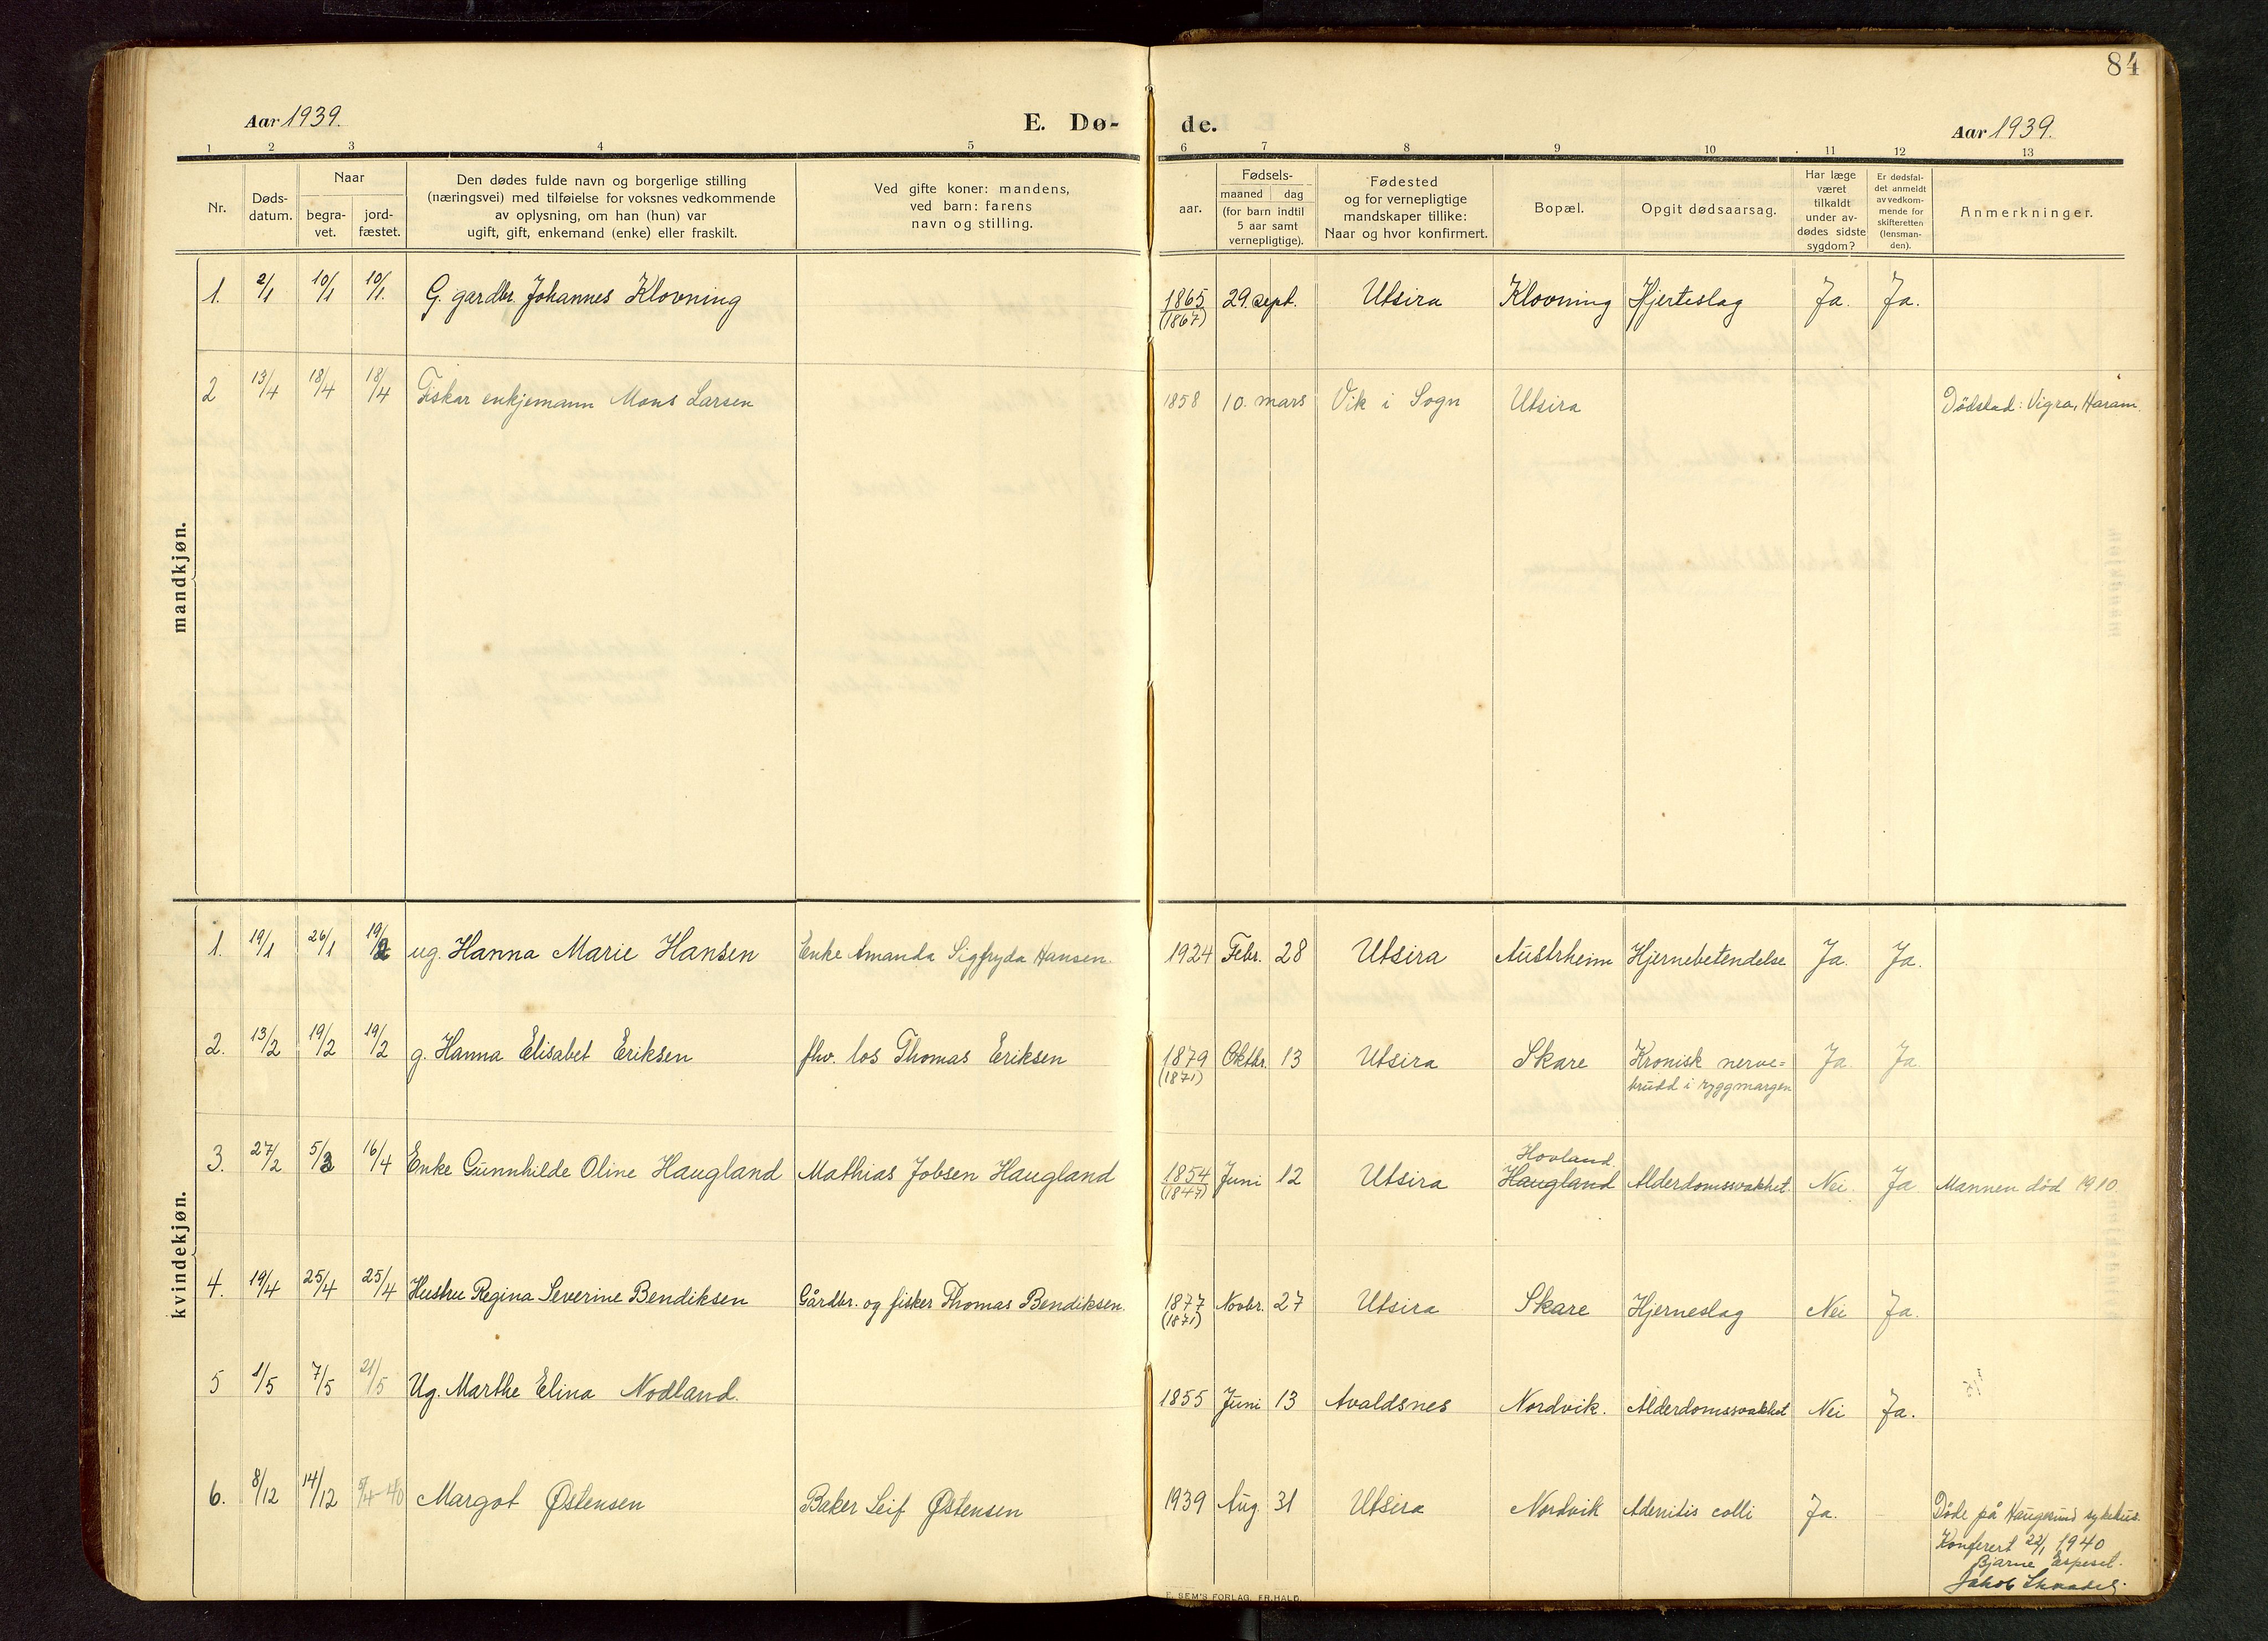 84
Aar 1939.
E. Dø-
de.
Aar 1939.
1 2 3 4 5 6 7 8 9 10 11 12 13
Nr.
Døds-
datum.
Naar
begra-
vet.
jord-
fæstet.
Den dødes fulde navn og borgerlige stilling
(næringsvei) med tilføielse for voksnes vedkommende
av oplysning, om han (hun) var
ugift, gift, enkemand (enke) eller fraskilt.
Ved gifte koner: mandens,
ved barn: farens
navn og stilling.
Fødsels-
aar.
maaned dag
(for barn indtil
5 aar samt
vernepligtige).
Fødested
og for vernepligtige
mandskaper tillike:
Naar og hvor konfirmert.
Bopæl.
Opgit dødsaarsag.
Har læge
været
tilkaldt
under av-
dødes sidste
sygdom?
Er dødsfal-
det anmeldt
av vedkom-
mende for
skifteretten
(lensman-
den).
Anmerkninger.
mandkjøn.
1. 2/1 10/1 10/1. G. gardbr. Johannes Klovning 1865 29. sept. Utsira Klovning Hjerteslag Ja. Ja.
(1867)
2 13/4 18/4 18/4 Fiskar enkjemann Mons Larsen 1858 10. mars Vik i Sogn Utsira Dödstad: Vigra, Haram.
kvindekjøn.
1. 19/1 26/1 19/2 ug. Hanna Marie Hansen Enke Amanda Sigfryda Hansen. 1924 Febr. 28 Utsira Austrheim Hjernebetendelse Ja. Ja.
2. 13/2 19/2 19/2 g. Hanna Elisabet Eriksen fhv. los Thomas Eriksen 1879 Oktbr. 13 Utsira Skare Kronisk nerve=
(1871) brudd i ryggmargen Ja. Ja.
Hovland
3. 27/2 5/3 16/4 Enke Gunnhilde Oline Haugland Mathias Jobsen Haugland 1854 Juni 12 Utsira Haugland Alderdomssvakhet Nei. Ja Mannen död 1910
(1847)
4. 19/4 25/4 25/4 Hustru Regina Severine Bendiksen Gårdbr. og fisker Thomas Bendiksen. 1877 Novbr. 27 Utsira Skare Hjerneslag Nei Ja.
(1871)
5 1/5 7/5 21/5 Ug. Marthe Elina Nodland. 1855 Juni 13 Avaldsnes Nordvik. Alderdomssvakhet Nei Ja.
6. 8/12 14/12 Margot Østensen Baker Leif Østensen 1939 Aug 31 Utsira Nordvik Adenitis colli Ja. Döde på Haugesund sykehus.
Konferert 22/1 1940
Bjarne Espeset.
Jakob
E. SEM'S FORLAG, FR.HALD.